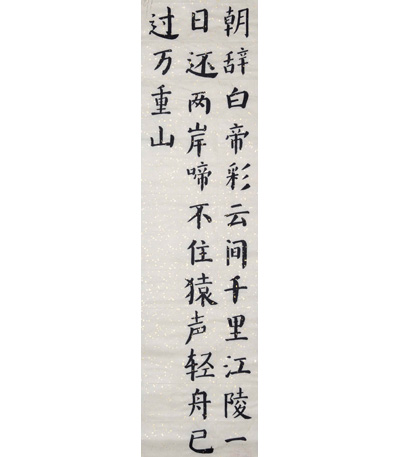 朝辞白帝彩云间千里江陵一
日还两岸啼不住猿声轻舟已
过万重山